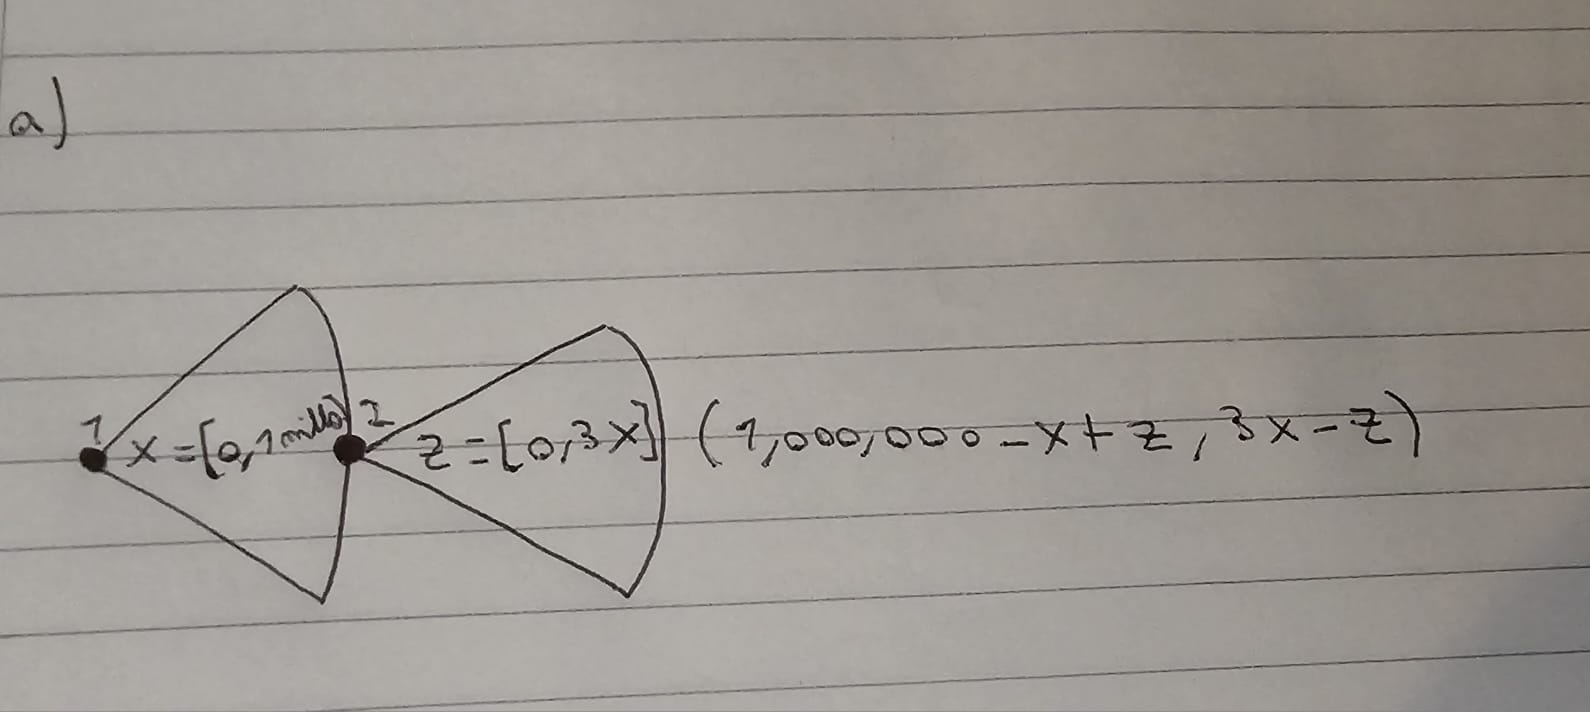 a)
1 x=[0,1 mill] 2 z=[0,3x] (1,000,000-x+z, 3x-z)